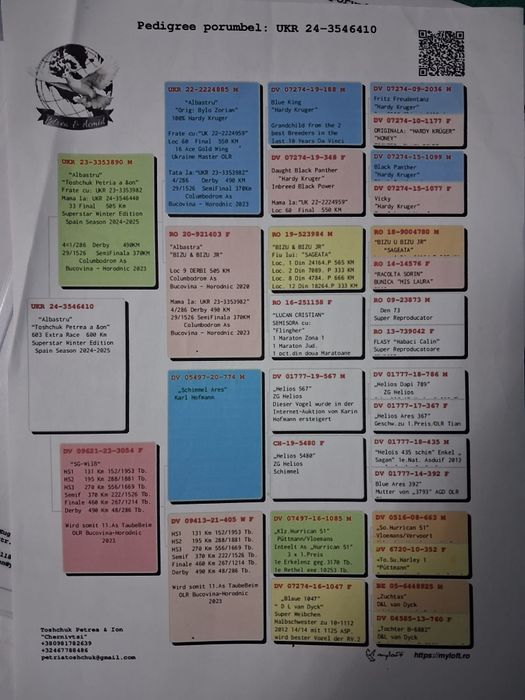 Pedigree porumbel: UKR 24-3546410
UKR 24-3546410
"Albastru"
"Toshchuk Petrea & Son"
603 Extra Race 600 Km
Superstar Winter Edition
Spain Season 2024-2025
UKR 23-3353890 M
"Albastru"
"Toshchuk Petria a Ion"
Frate cu: UKR 23-3353982
Mama la: UKR 24-3546440
33 Final 505 Km
Superstar Winter Edition
Spain Season 2024-2025
4=1/286 Derby 490KM
29/1526 SemiFinala 370Km
Columbodrom As
Bucovina - Horodnic 2023
DV 09621-23-3054 F
"SG-Wilb"
HS1 131 Km 152/1953 Tb.
HS2 195 Km 288/1881 Tb.
HS3 270 Km 556/1669 Tb.
Semif 370 Km 222/1526 Tb.
Finale 460 Km 267/1214 Tb.
Derby 490 Km 48/286 Tb.
Wird somit 11.As TaubeBeim
OLR Bucovina-Horodnic
2023
UKR 22-2224885 M
"Albastru"
"Orig: Bylo Zorian"
100% Hardy Kruger
Frate cu: "UK 22-2224959"
Loc 60 Final 550 KM
16 Ace Gold King
Ukraine Master OLR
Tata la: UKR 23-3353982
4/286 Derby 490 KM
29/1526 SemiFinal 370Km
Columbodrom As
Bucovina - Horodnic 2023
RO 20-921403 F
"Albastra"
"BIZU & BIZU JR"
Loc 9 DERBI 505 KM
Columbodrom As
Bucovina - Horodnic 2020
Mama la: UKR 23-3353982"
4/286 Derby 490 KM
29/1526 SemiFinala 370KM
Columbodrom As
Bucovina - Horodnic 2023
DV 05497-20-774 M
„Schimmel Ares"
Karl Hofmann
DV 09413-21-405 W F
HS1 131 Km 152/1953 Tb.
HS2 195 Km 288/1881 Tb.
HS3 270 Km 556/1669 Tb.
Semif 370 Km 222/1526 Tb.
Finale 460 Km 267/1214 Tb.
Derby 490 Km 48/286 Tb.
Wird somit 11.As TaubeBeim
OLR Bucovina-Horodnic
2023
DV 07274-19-188 M
Blue King
"Hardy Kruger"
Grandchild from the 2
best Breeders in the
last 10 Years Da Vinci
DV 07274-19-348 F
Daught Black Panther
"Hardy Kruger"
Inbreed Black Power
Mama la: "UK 22-2224959"
Loc 60 Final 550 KM
RO 19-523984 M
"BIZU & BIZU JR"
Fiu lui: "SAGEATA"
Loc. 1 Din 24164.P 565 KM
Loc. 2 Din 7089. P 333 KM
Loc. 8 Din 4784. P 666 KM
Loc. 12 Din 18264.P 333 KM
RO 16-251158 F
"LUCAN CRISTIAN"
SEMISORA cu:
"Flingher"
1 Maraton Zona 1
1 Maraton Jud.
1 oct.din doua Maratoane
DV 01777-19-567 M
„Helios 567"
ZG Helios
Dieser Vogel wurde in der
Internet-Auktion von Karin
Hofmann ersteigert
CH-19-5480 F
„Helios 5480"
ZG Helios
Schimmel
DV 07497-16-1085 M
„Klz.Hurrican 51"
Püttmann/Vloemans
Inteelt As „Hurrican 51"
3 x 1.Preis
1e Erkelenz geg.3170 Tb.
1e Rethel geg.10253 Tb.
DV 07274-16-1047 F
„Blaue 1047"
" D & L van Dyck"
Super Weibchen
Halbschwester zu 10-1112
2012 14/14 mit 1125 ASP.
wird bester Vogel der RV.2
DV 07274-09-2036 M
Fritz Freudentanz
"Hardy Kruger"
DV 07274-10-1177 F
ORIGINALA: "HARDY KRUGER"
"HONEY"
DV 07274-15-1099 M
Black Panther
"Hardy Kruger"
DV 07274-15-1077 F
Vicky
"Hardy Kruger"
RO 18-9004780 M
"BIZU & BIZU JR"
"SAGEATA"
RO 14-14576 F
"RACOLTA SORIN"
BUNICA "MIS LAURA"
RO 09-23873 M
Den 73
Super Reproducator
RO 13-739042 F
FLASY "Habaci Calin"
Super Reproducatoare
DV 01777-18-786 M
„Helios Dapi 789"
ZG Helios
DV 01777-17-367 F
„Helios Ares 367"
Geschw.zu 1.Preis/OLR Tian
DV 01777-18-435 M
"Helois 435 schin" Enkel „
Sagan" 1e.Nat. Asduif 2013
DV 01777-14-392 F
Blue Ares 392"
Mutter von „3793" AGD OLR
DV 0516-08-663 M
„So.Hurrican 51"
Vloemans/Vervoort
DV 6720-10-352 F
„To.Su.Harley 1
"Püttmann"
BE 05-6448925 M
„Zuchtas"
D&L van Dyck
DV 04585-13-760 F
„Tochter B-6482"
D&L van Dyck
Toshchuk Petrea & Ion
"Chernivtsi"
+380981782639
+32467788486
petriatoshchuk@gmail.com
myloft
https://myloft.ro